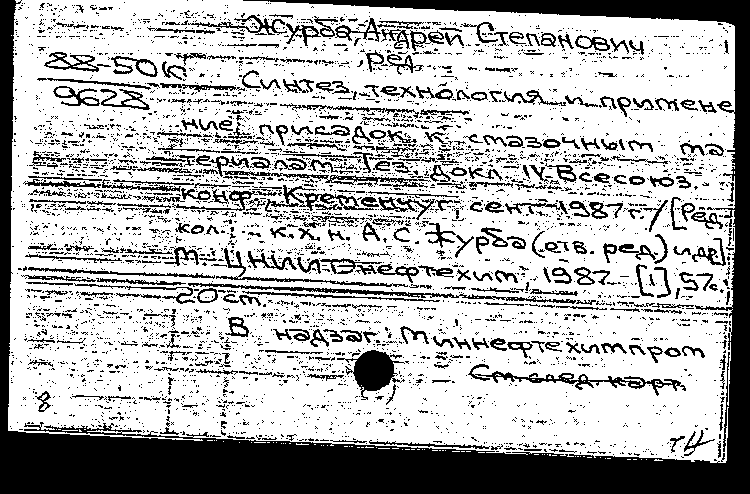 Журба, Андрей Степанович
, ред.
88-50к
9628
Синтез, технология и примене
ние присадок к смазочным ма
териалам: Тез. докл. IV Всесоюз.
конф., Кременчуг, сент. 1987 г. / [Ред.
кол.: к.х.н. А. С. Журба (отв. ред.) и др.]
М.: ЦНИИТЭнефтехим, 1987 - [1], 57с.;
20 см.
В надзаг.: Миннефтехимпром
См. след. карт.
8